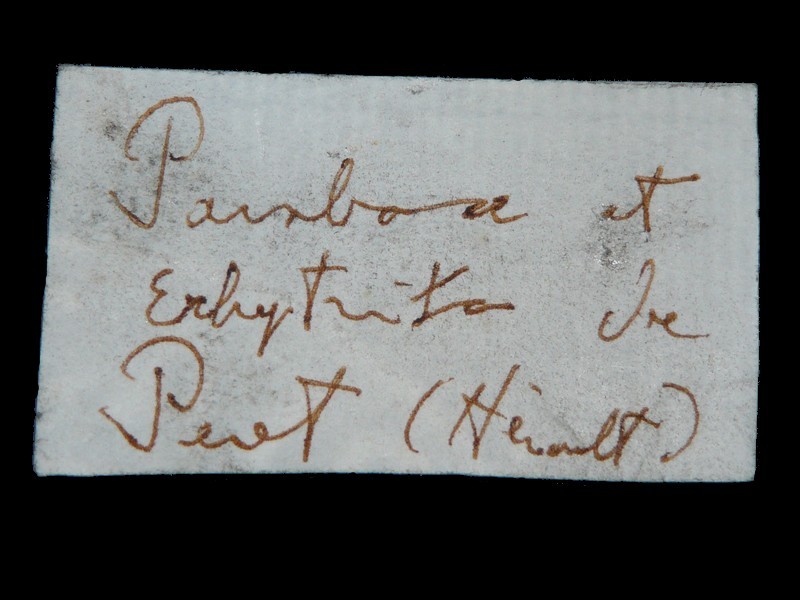 Parisbase et
Erhytrite de
Peret (Hérault)